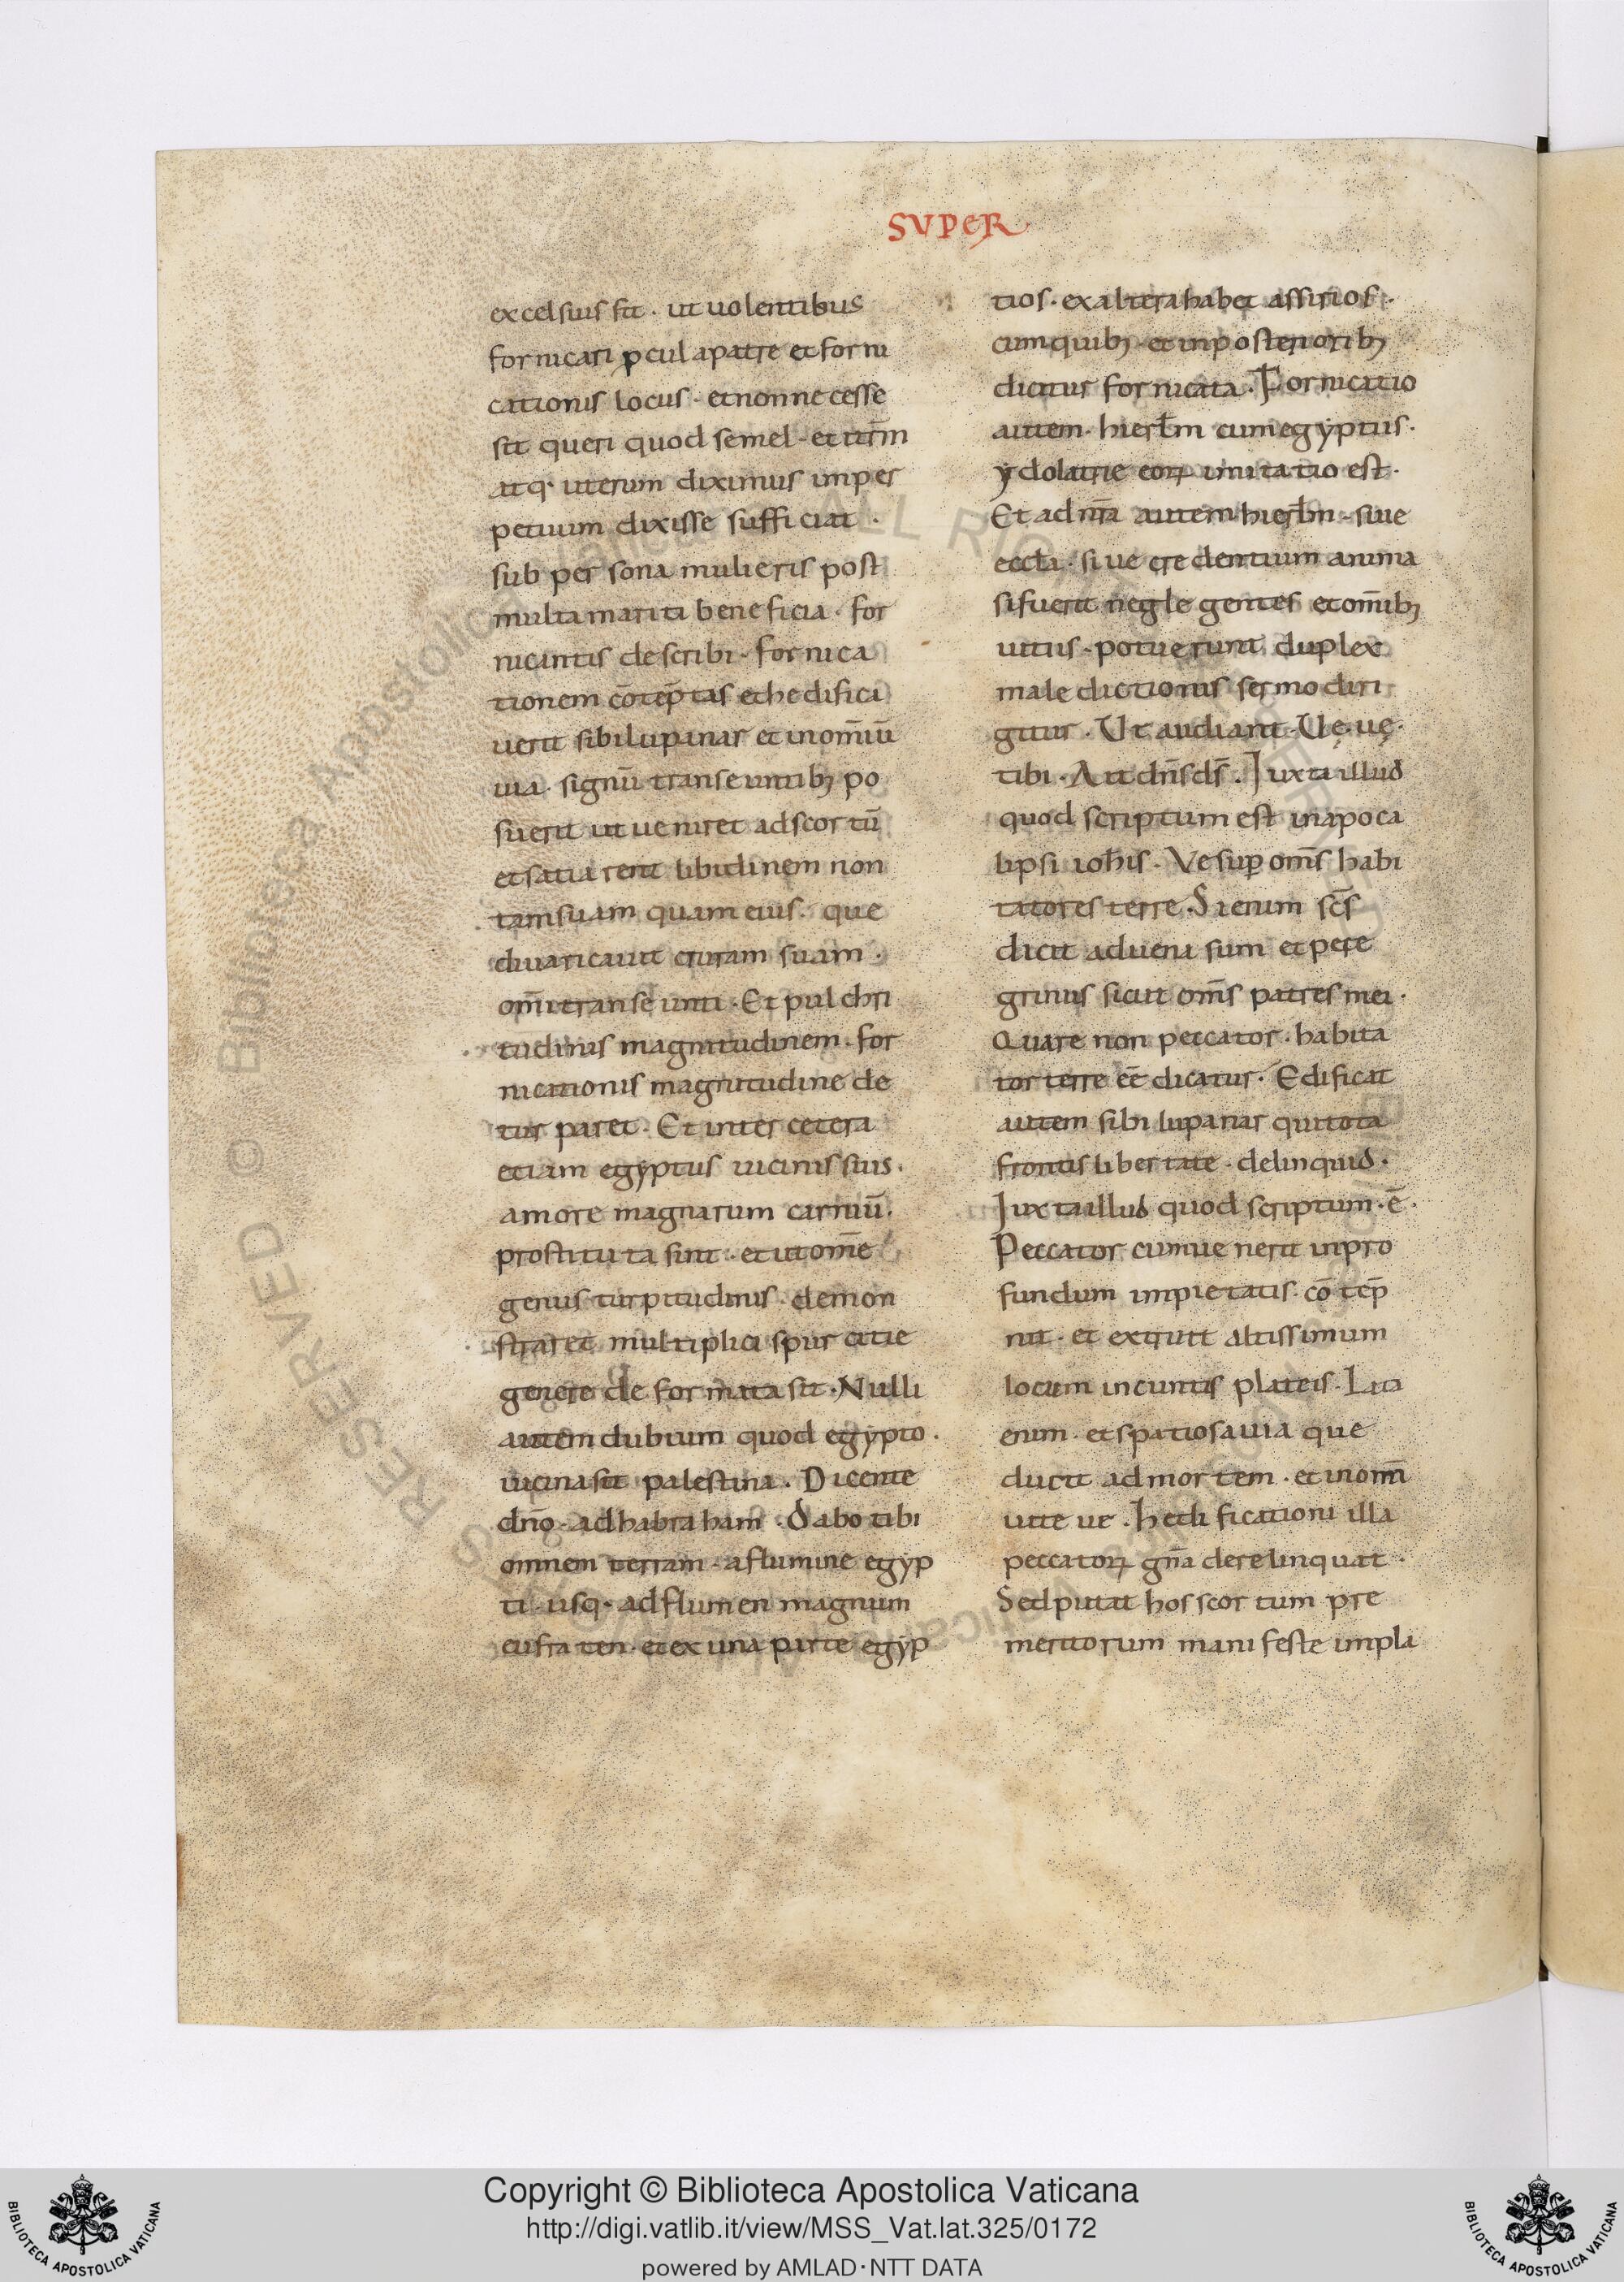 SVPER
excelsius sit · ut uolentibus
fornicari pcul apatre et forni
cationis locus · et non necesse
sit queri quod semel · et itr̄m
atq· iterum diximus inper
petuum dixisse sufficiat ·
sub persona mulieris post
multa mariti beneficia · for
nicantis describi · fornica
tionem cōtēptas et hedifica
uerit sibi lupanar et in om̄i ū
uia · signū transeuntibꝫ po
suerit ut ueniret ad scortū
et satiarent libidinem non
tam suam quam eius · que
diuaricauit cruram suam ·
om̄i transeunti · Et pulchri
tudinis magnitudinem · for
nicationis magnitudine de
tur paret · Et inter cetera
etiam egyptus uicinis suis ·
amore magnarum carniū ·
prostituta sint · et ut om̄e
genus turpitudinis · demon
straret multiplici spurcitie
genere de formata sit · Nulli
autem dubium quod egypto ·
uicina sit palestina · Dicente
dn̄o · ad habraham · Dabo tibi
omnem terram · a flumine egyp
ti · usq· ad flumen magnum
eufraten · et ex una parte egyp
tios · ex altera habet assirios ·
cum quibꝫ · et in posterioribꝫ
dicitur fornicata · Fornicatio
autem · hierl̄m cum egyptus ·
ydolatrie eoꝝ imitatio est ·
Et ad nr̄a autem hierl̄m · siue
eccl̄a · siue credentium anima
si fuerit neglegentes et om̄ibꝫ
uitiis · potuerunt duplex
maledictionis sermo diri
gitur · Ut audiant · Ue · uę ·
tibi · Ait dn̄s ds̄ · Iuxta illud
quod scriptum est in apoca
lipsi ioh̄is · Ve sup om̄s habi
tatores terre · Si enim sc̄s
dicit aduena sum et pere
grinus sicut om̄s patres mei ·
Quare non peccator · habita
tor terre eē dicatur · Edificat
autem sibi lupanar qui tota
frontis libertate · delinquid ·
Iuxta illud quod scriptum · ē ·
Peccator cum uenerit in pro
fundum impietatis · cōtēp
nit · et extruit altissimum
locum in cuntis plateis · Lata
enim · et spatiosa uia que
ducit ad mortem · et in omī
uite ue · Hedificationi illa
peccatoꝝ gn̄a derelinquat ·
Sed putat hos scortum pre
meritorum manifeste impla
Copyright © Biblioteca Apostolica Vaticana
http://digi.vatlib.it/view/MSS_Vat.lat.325/0172
powered by AMLAD·NTT DATA
BIBLIOTECA APOSTOLICA VATICANA
BIBLIOTECA APOSTOLICA VATICANA